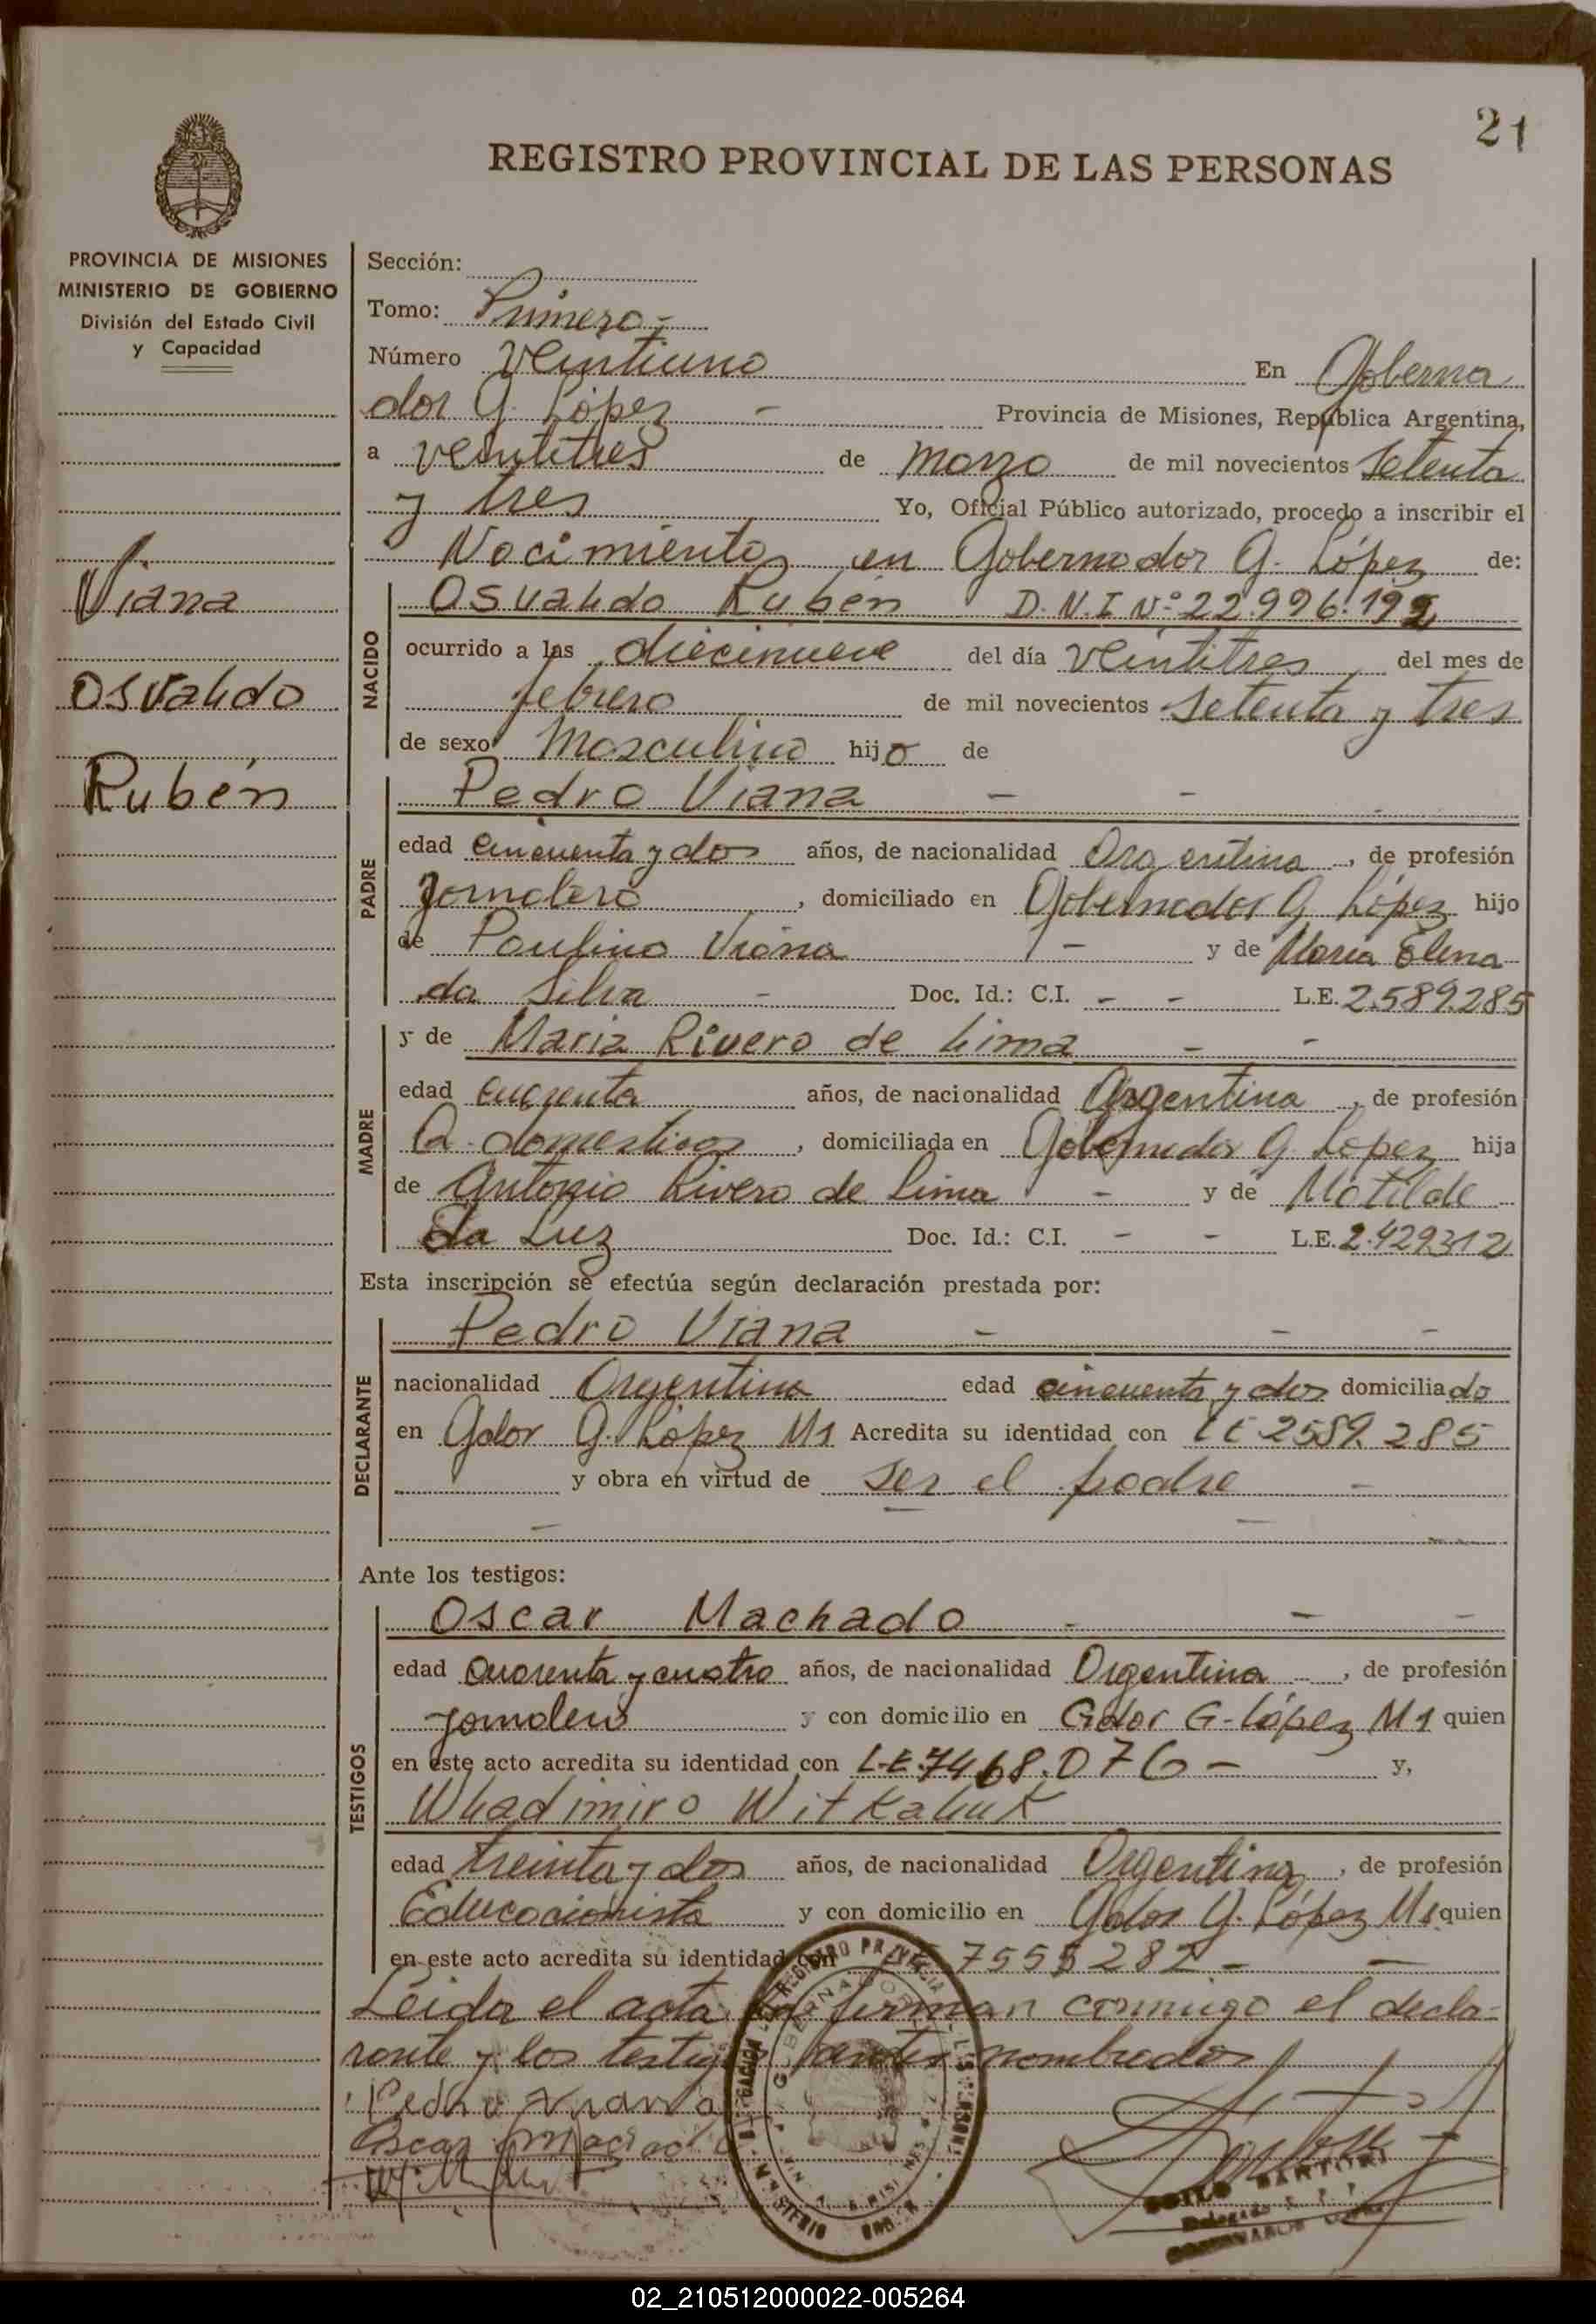 21
REGISTRO PROVINCIAL DE LAS PERSONAS
PROVINCIA DE MISIONES
MINISTERIO DE GOBIERNO
División del Estado Civil
y Capacidad
Viana
Osvaldo
Rubén
Sección:
Tomo: Primero -
Número Veintiuno En Goberna
dor G. López - Provincia de Misiones, República Argentina,
a veintitres de marzo de mil novecientos setenta
y tres Yo, Oficial Público autorizado, procedo a inscribir el
Nacimiento en Gobernador G. López de:
NACIDO
Osvaldo Rubén D.N.I Nº 22.996.192
ocurrido a las diecinueve del día veintitres del mes de
febrero de mil novecientos setenta y tres
de sexo masculino hijo de
PADRE
Pedro Viana - -
edad cincuenta y dos años, de nacionalidad Argentina, de profesión
Jornalero, domiciliado en Gobernador G. López hijo
de Paulino Viana - y de María Elena
da Silva - Doc. Id.: C.I. - - L.E. 2.589.285
MADRE
y de Maria Rivero de Lima - -
edad cuarenta años, de nacionalidad Argentina, de profesión
Q. domesticos, domiciliada en Gobernador G. López hija
de Antonio Rivero de Lima - y de Matilde
da Luz Doc. Id.: C.I. - - L.E. 2.429.312
Esta inscripción se efectúa según declaración prestada por:
DECLARANTE
Pedro Viana - - -
nacionalidad Argentina edad cincuenta y dos domiciliado
en Gdor G. López M1 Acredita su identidad con LE 2589.285
y obra en virtud de ser el padre -
- - -
Ante los testigos:
TESTIGOS
Oscar Machado - - -
edad cuarenta y cuatro años, de nacionalidad Argentina, de profesión
jornalero y con domicilio en Gdor G. López M1 quien
en este acto acredita su identidad con L.E. 7468.076 - y,
Wladimiro Witkaluk
edad treinta y dos años, de nacionalidad Argentina, de profesión
Educacionista y con domicilio en Gdor G. López M1 quien
en este acto acredita su identidad con 7555282 - -
Leida el acta la firman conmigo el decla-
rante y los testigos antes nombrados
Pedro Viana
Oscar Machado
SARTORI
02_210512000022-005264